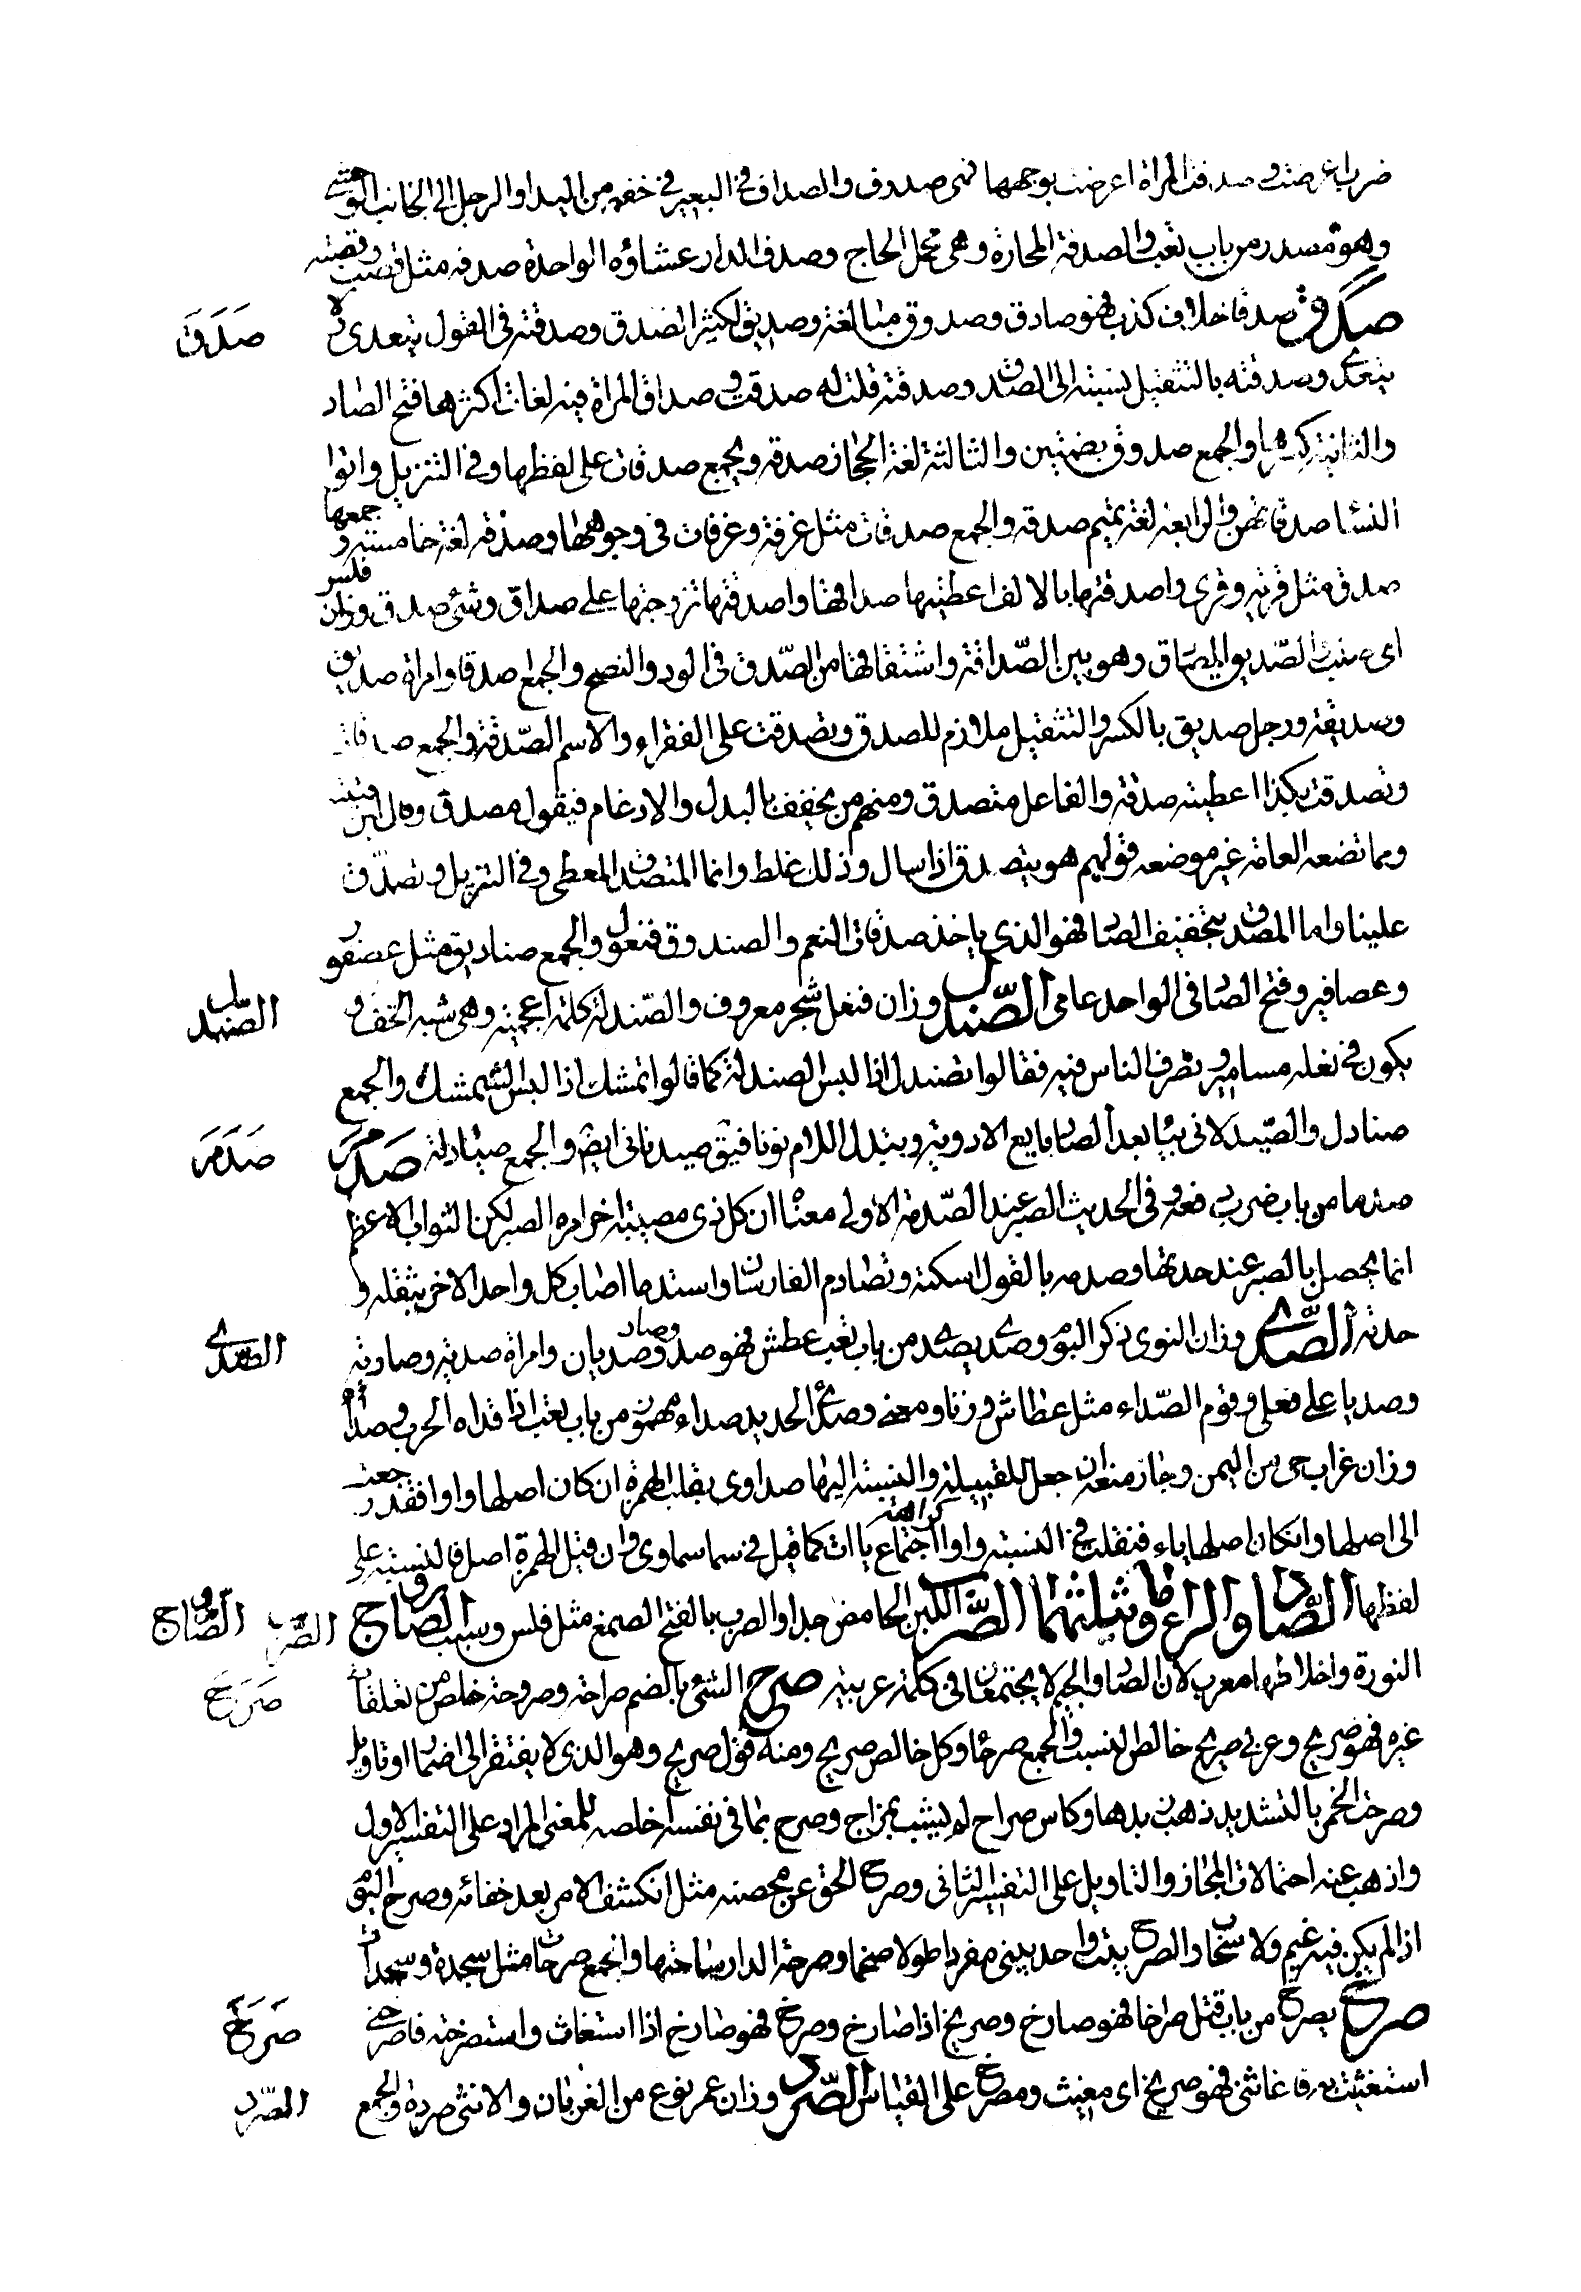 ضرب اعرضت وصدفت المراة اعرضت بوجهها فهى صدوف والصدف فى البعير فى خفه من اليد او الرجل الى الجانب الوحشى
وهو مصدر من باب تعب والصدفة المحارة وهى محمل الحاج وصدف الدر غشاؤه الواحدة صدفه مثل قصب وقصبه
صدق صدقا خلاف كذب فهو صادق وصدوق مبالغة وصديق لكثير الصدق وصدقته فى القول يتعدى ولا
صَدَقَ
يتعدى وصدقته بالتثقيل نسبته الى الصدق وصدقته قلت له صدقت وصداق المراة فيه لغات اكثرها فتح الصاد
والثانية كسرها والجمع صدق بضمتين والثالثة لغة الحجاز صدقه ويجمع صدقات على لفظها وفى التنزيل واتوا
النسا صدقاتهن والرابعة لغة تميم صدقه والجمع صدقات مثل غرفة وغرفات فى وجوهها وصدقه لغة خامسة وجمعها
صدق مثل قريه وقرى واصدقتها بالالف اعطيتها صداقها واصدقتها تزوجتها على صداق وشئ صدق وزان فلس
اى صلب والصديق المصادق وهو بين الصّداقة واشتقاقها من الصّدق فى الود والنصح والجمع اصدقا وامراة صديق
وصديقة ورجل صديق بالكسر والتثقيل ملازم للصدق وتصدقت على الفقراء والاسم الصّدقة والجمع صدقات
وتصدقت بكذا اعطيته صدقة والفاعل متصدق ومنهم من يخفف بالبدل والادغام فيقول مصدق وقال ابن قتيبه
ومما تضعه العامة غير موضعه قولهم هو يتصدق اذا سال وذلك غلط وانما المتصدق المعطى وفى التنزيل وتصدّق
علينا واما المصدق بتخفيف الصاد فهو الذى ياخذ صدقات النعم والصندوق فنعول والجمع صناديق مثل عصفور
وعصافير وفتح الصاد فى الواحد عامى الصّندل وزان فنعل شجر معروف والصّندلة كلمة اعجمية وهى شبه الخف و
الصّندل
يكون فى نعله مسامير وتصرف الناس فيه فقالوا تصندل اذا لبس الصندلة كما قالوا تمسك اذا لبس الشمشك والجمع
صنادل والصّيدلانى بيا بعد الصاد بايع الادوية وتبدل اللام نونا فيق صيدنانى ايض والجمع صيادلة صَدَمَ
صَدَمَرَ
صدما من باب ضرب دفعه وفى الحديث الصبر عند الصّدمة الاولى معناه ان كل ذى مصيبة اخر امره الصبر لكن الثواب الاعظم
انما يحصل بالصبر عند حدتها وصدمه بالقول اسكته وتصادم الفارسان واصطدما اصاب كل واحد الاخر بثقله و
حدته الصّدى وزان النوى ذكر البوم وصدى يصدى من باب تعب عطش فهو صد وصاد وصديان وامراة صديه وصادية
الصّدى
وصديا على فعلى وقوم الصّداء مثل عطاش وزنا ومعنى وصدئ الحديد صداء مهموز من باب تعب اذا علاه الجرب وصداء
وزان غراب حى من اليمن وجاز منعه ان جعل للقبيلة والنسبة اليها صداوى بقلب الهمزة ان كان اصلها واوا فقد رجعت
الى اصلها وان كان اصلها ياء فتقلب فى النسبة واوا كراهة اجتماع ياات كما قيل فى سما سماوى وان قيل الهمزة اصل فالنسبة على
لفظها الصّاد والراء وما يثلثهما الصّرب اللبن الحامض جدا والصرب بالفتح الصمغ مثل فلس وسبب الصاروج
الصّرب
الصّاروج
النورة واخلاطها معرب لان الصاد والجيم لا يجتمعان فى كلمة عربية صرح الشئ بالضم صراحة وصروحة خلص من تعلقات
صَرَحَ
غيره فهو صريح وعربى صريح خالص النسب والجمع صرحا وكل خالص صريح ومنه قول صريح وهو الذى لا يفتقر الى اضمار او تاويل
وصرحت الخمر بالتشديد ذهب زبدها وكاس صراح لم يشب بمزاج وصرح بما فى نفسه اخلصه للمعنى المراد على التفسير الاول
واذهب عنه احتمالات المجاز والتاويل على التفسير الثانى وصرح الحق عن محصنه مثل انكشف الامر بعد خفائه وصرح اليوم
اذا لم يكن فيه غيم ولا سحاب والصرح بيت واحد يبنى مفردا طولا ضخما وصرحة الدار ساحتها والجمع صرحات مثل سجدة وسجدات
صرخ يصرخ من باب قتل صراخا فهو صارخ وصريخ اذا صارخ وصرخ فهو صارخ اذا استغاث واستصرخته فاصرخنى
صَرَخَ
استغثت به فاغاثنى فهو صريخ اى مغيث ومصرخ على القياس الصّرد وزان عمر نوع من الغربان والانثى صردة والجمع
الصّرد